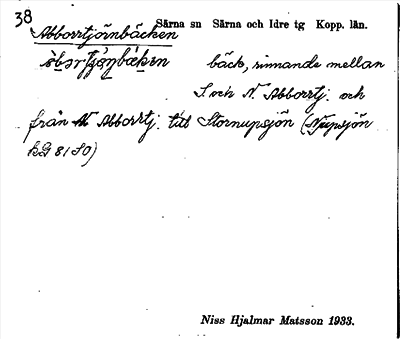 38
Abborrtjörnbäcken Särna sn Särna och Idre tg Kopp. län.
bäck, rinnande mellan
S. och N. Abborrtj. och
från N Abborrtj. till Stornupsjön (Nupsjön
kG 81 SO)
Niss Hjalmar Matsson 1933.